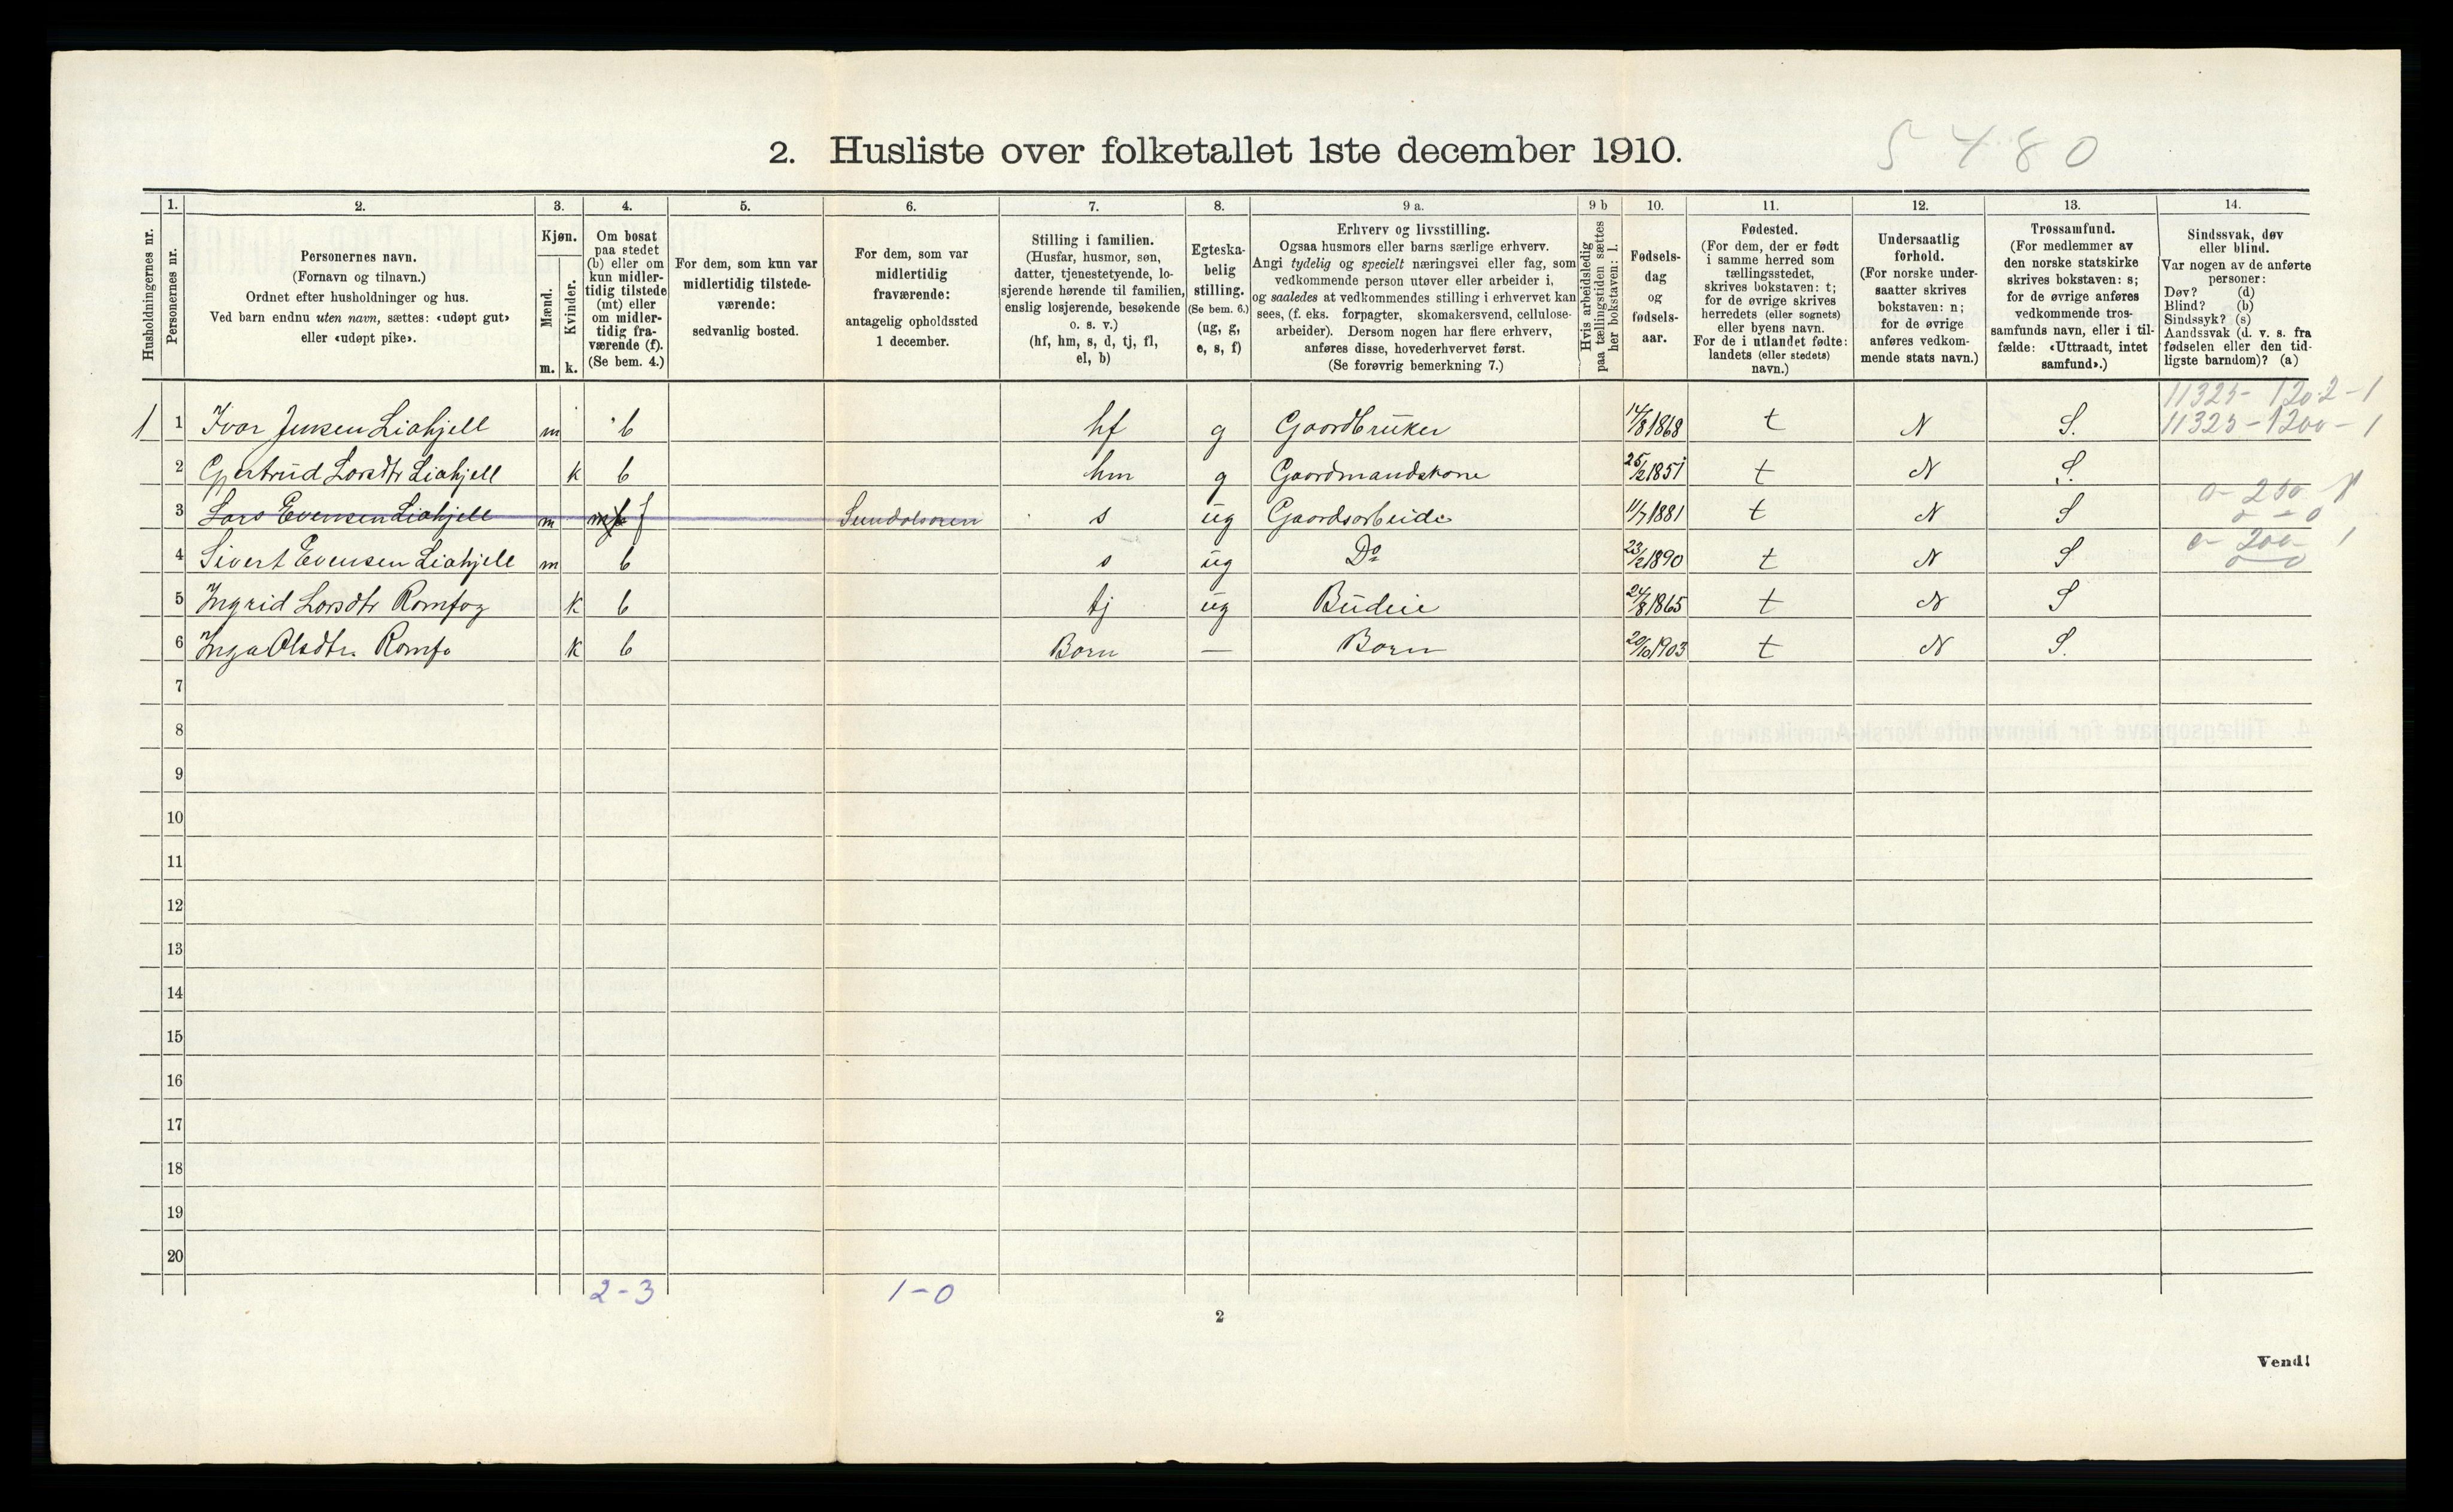 2. Husliste over folketallet 1ste december 1910.
5480
Husholdningernes nr.
1.
Personernes nr.
2.
Personernes navn.
(Fornavn og tilnavn.)
Ordnet efter husholdninger og hus.
Ved barn endnu uten navn, sættes: «udøpt gut»
eller «udøpt pike».
3.
Kjøn.
Mænd.
Kvinder.
m. k.
4.
Om bosat
paa stedet
(b) eller om
kun midler-
tidig tilstede
(mt) eller
om midler-
tidig fra-
værende (f).
(Se bem. 4.)
5.
For dem, som kun var
midlertidig tilstede-
værende:
sedvanlig bosted.
6.
For dem, som var
midlertidig
fraværende:
antagelig opholdssted
1 december.
7.
Stilling i familien.
(Husfar, husmor, søn,
datter, tjenestetyende, lo-
sjerende hørende til familien,
enslig losjerende, besøkende
o. s. v.)
(hf, hm, s, d, tj, fl,
el, b)
8.
Egteska-
belig
stilling.
(Se bem. 6.)
(ug, g,
e, s, f)
9 a.
Erhverv og livsstilling.
Ogsaa husmors eller barns særlige erhverv.
Angi tydelig og specielt næringsvei eller fag, som
vedkommende person utøver eller arbeider i,
og saaledes at vedkommendes stilling i erhvervet kan
sees, (f. eks. forpagter, skomakersvend, cellulose-
arbeider). Dersom nogen har flere erhverv,
anføres disse, hovederhvervet først.
(Se forøvrig bemerkning 7.)
9 b
Hvis arbeidsledig
paa tællingstiden sættes
her bokstaven: l.
10.
Fødsels-
dag
og
fødsels-
aar.
11.
Fødested.
(For dem, der er født
i samme herred som
tællingsstedet,
skrives bokstaven: t;
for de øvrige skrives
herredets (eller sognets)
eller byens navn.
For de i utlandet fødte:
landets (eller stedets)
navn.)
12.
Undersaatlig
forhold.
(For norske under-
saatter skrives
bokstaven: n;
for de øvrige
anføres vedkom-
mende stats navn.)
13.
Trossamfund.
(For medlemmer av
den norske statskirke
skrives bokstaven: s;
for de øvrige anføres
vedkommende tros-
samfunds navn, eller i til-
fælde: «Uttraadt, intet
samfund».)
14.
Sindssvak, døv
eller blind.
Var nogen av de anførte
personer:
Døv? (d)
Blind? (b)
Sindssyk? (s)
Aandssvak (d. v. s. fra
fødselen eller den tid-
ligste barndom)? (a)
11325-1202-1
1 1 Ivar Jensen Liahjell m b hf g Gaardbruker 14/8 1868 t N S. 11325-1200-1
2 Gjertrud Larsdtr Liahjell k b hm g Gaardmandskone 25/2 1851 t N S.
3 Lars Evensen Liahjell m f Sundalsøren s ug Gaardsarbeide 11/7 1881 t N S 0-250
4 Sivert Evensen Liahjell m b s ug Do 23/2 1890 t N S 0-200- 1
5 Ingrid Larsdtr Romfog k b tj ug Budeie 24/8 1865 t N S
6 Inga Olsdtr. Romfo k b Barn — Barn 20/10 1903 t N S.
7
8
9
10
11
12
13
14
15
16
17
18
19
20
2-3 1-0
2
Vend!